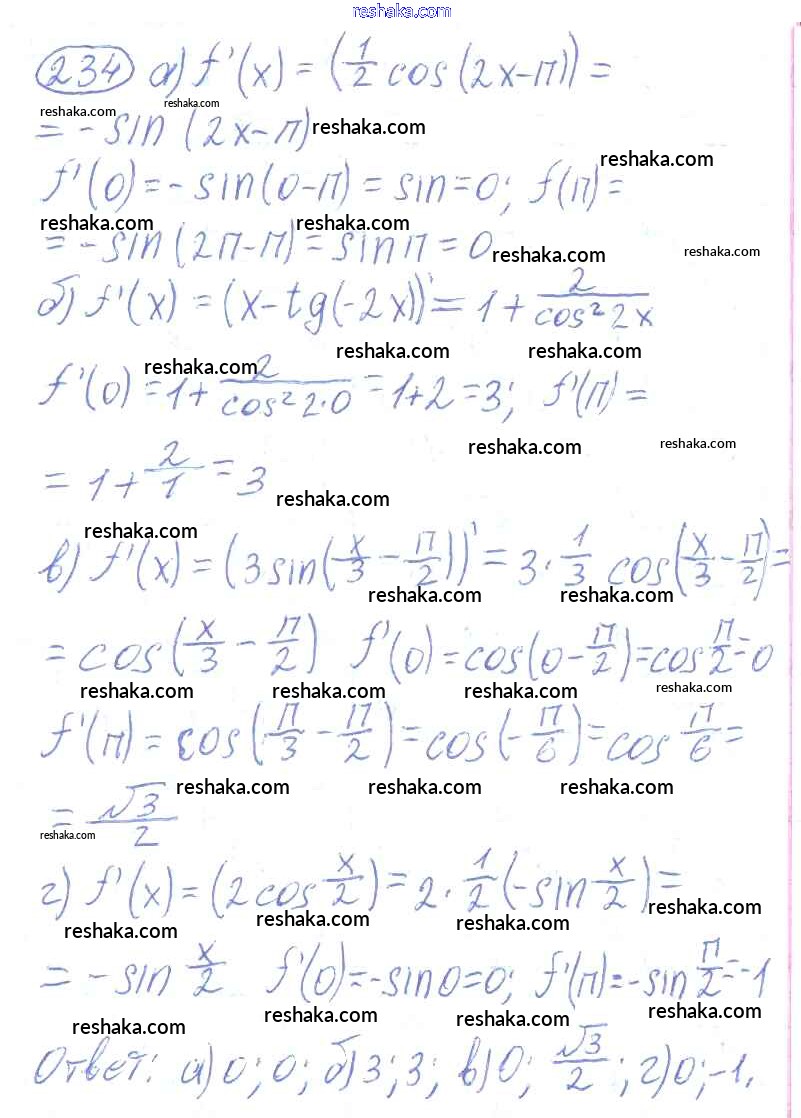 reshaka.com
234 а) f'(x) = (1/2 cos(2x-π)) =
reshaka.com reshaka.com
= - sin (2x-π) reshaka.com
reshaka.com
f'(0) = - sin(0-π) = sin = 0; f(π) =
reshaka.com reshaka.com
= - sin (2π-π) = sin π = 0 reshaka.com reshaka.com
б) f'(x) = (x-tg(-2x))' = 1 + 2/cos² 2x
reshaka.com reshaka.com reshaka.com
f'(0) = 1 + 2/cos² 2·0 = 1+2 = 3; f'(π) =
reshaka.com reshaka.com
= 1 + 2/1 = 3 reshaka.com
reshaka.com
в) f'(x) = (3 sin(x/3 - π/2))' = 3 · 1/3 cos(x/3 - π/2) =
reshaka.com reshaka.com
= cos(x/3 - π/2) f'(0) = cos(0 - π/2) = cos π/2 = 0
reshaka.com reshaka.com reshaka.com reshaka.com
f'(π) = cos(π/3 - π/2) = cos(-π/6) = cos π/6 =
reshaka.com reshaka.com reshaka.com
= √3/2
reshaka.com
г) f'(x) = (2 cos x/2) = 2 · 1/2 (-sin x/2) =
reshaka.com reshaka.com reshaka.com reshaka.com
= - sin x/2 f'(0) = -sin 0 = 0; f'(π) = -sin π/2 = -1
reshaka.com reshaka.com reshaka.com reshaka.com
Ответ: а) 0; 0; б) 3; 3; в) 0; √3/2; г) 0; -1.